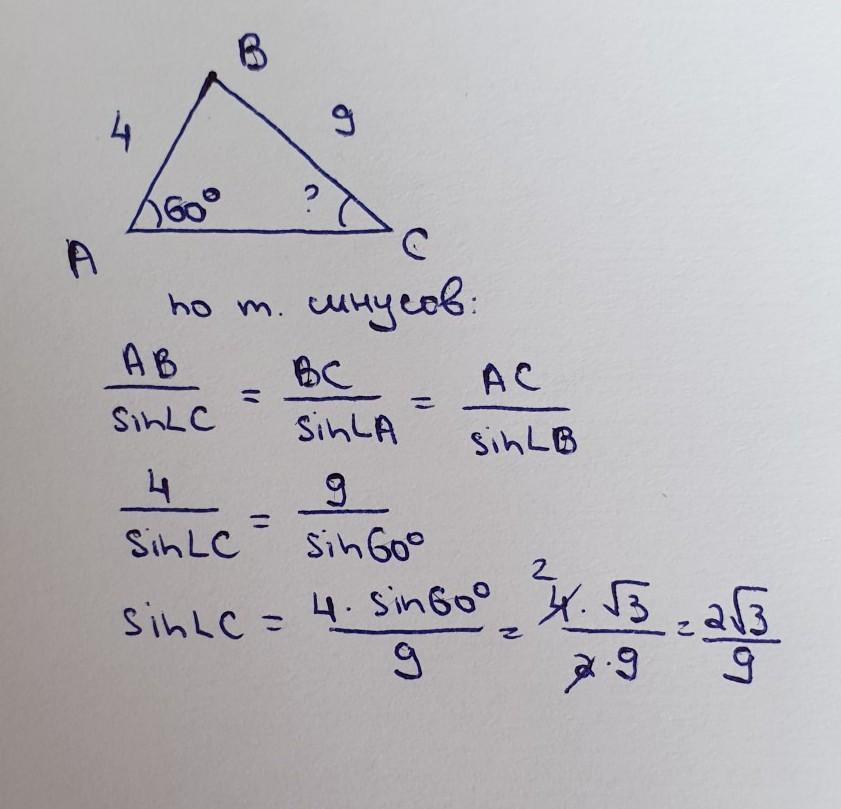 B
4 9
60° ?
A C
по т. синусов:
AB/sin∠C = BC/sin∠A = AC/sin∠B
4/sin∠C = 9/sin60°
sin∠C = 4·sin60°/9 = 2 4·√3/2·9 = 2√3/9